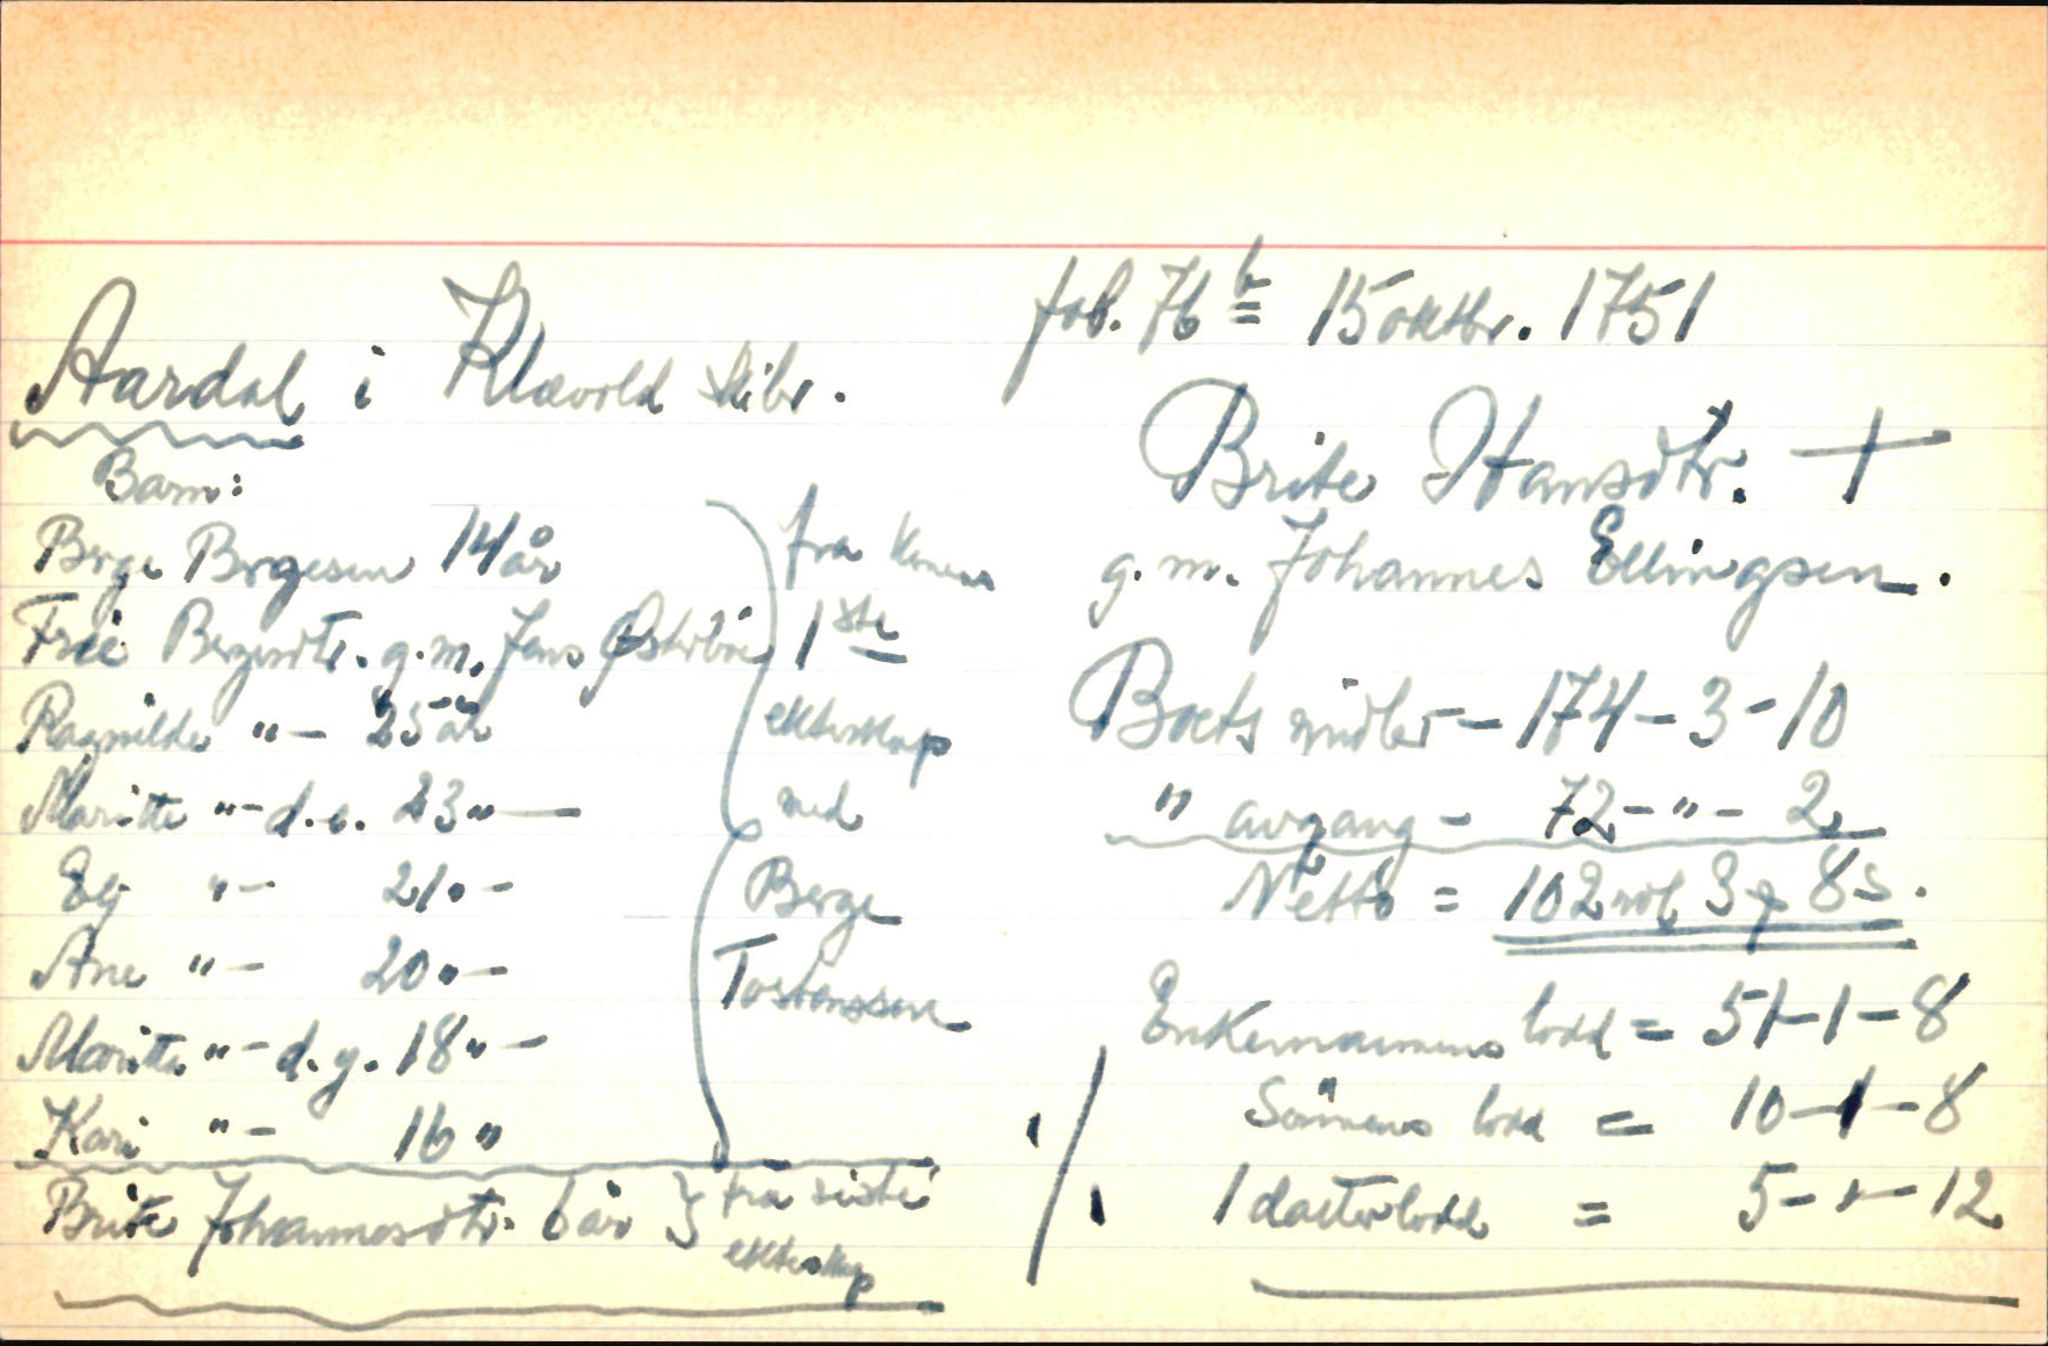 fol. 76 b 15 oktbr. 1751
Aardal i Klævold skibr.
Brite Hansdtr. +
g. m. Johannes Ellingsen.
Barn:
Berge Bergesen 14 år
Frie Bergesdtr. g. m. Jens Østerbøe
Ragnilde "- 25 år
Maritte "- d. e. 23 "-
Eli "- 21 "-
Ane "- 20 "-
Maritte "- d. y. 18 "-
Kari "- 16 "
fra konens
1ste
ekteskap
med
Berge
Torstenssen
Brite Johannesdtr. 6 år } fra siste
ekteskap
Boets midler - 174 - 3 - 10
" avgang - 72 - " - 2
Netto = 102 rdl 3 8 s.
Enkemannens lodd = 51 - 1 - 8
Sønnens lodd = 10 - 1 - 8
1 datterlodd = 5 - " - 12